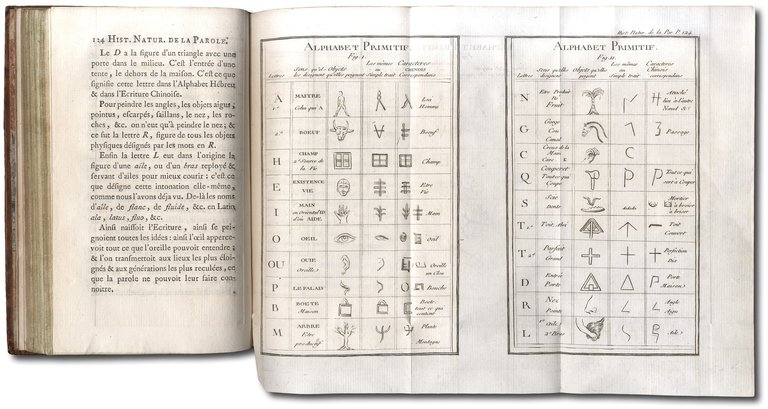 124 HIST. NATUR. DE LA PAROLE.
Le D a la figure d'un triangle avec une
porte dans le milieu. C'est l'entrée d'une
tente, le dehors de la maison. C'est ce que
signifie cette lettre dans l'Alphabet Hébreu
& dans l'Ecriture Chinoise.
Pour peindre les angles, les objets aigus,
pointus, escarpés, saillans, le nez, les ro-
ches, &c. on n'eut qu'à peindre le nez; &
ce fut la lettre R, figure de tous les objets
physiques désignés par les mots en R.
Enfin la lettre L eut dans l'origine la
figure d'une aîle, ou d'un bras reployé &
servant d'aîles pour mieux courir: c'est ce
que désigne cette intonation elle-même,
comme nous l'avons déja vu. De-là les noms
d'aîle, de flanc, de fluide, &c. en Latin,
ala, latus, fluo, &c.
Ainsi naissoit l'Ecriture, ainsi se pei-
gnoient toutes les idées: ainsi l'œil apperce-
voit tout ce que l'oreille pouvoit entendre;
& l'on transmettoit aux lieux les plus éloi-
gnés & aux générations les plus reculées, ce
que la parole ne pouvoit leur faire con-
noitre.
ALPHABET PRIMITIF.
Fig. I.
Lettres
Sens qu'el-
les désignent
Objets
qu'elles peignent
Les mêmes
au
Simple trait
Caracteres
CHINOIS
Correspondans
A
1º
MAITRE
Celui qui A
Lou
Homme
2º
BOEUF
Bœuf
H
CHAMP
2º Source de
la Vie
Champ
E
EXISTENCE
VIE
Etre
Vie
I
MAIN
en Oriental ID
d'où AIDE
Main
O
OEIL
Oeil
OU
OUIE
Oreilles
Oreille
P
LE PALAIS
Bouche
B
BOETE
Maison
Boete
tout ce qui
contient
M
ARBRE
Etre
productif
Plante
Montagne
Hist. Natur. de la Par. P. 124.
ALPHABET PRIMITIF.
Fig. II.
Lettres
Sens qu'elles
désignent
Objets qu'elles
peignent
Les mêmes
au
Simple trait
Caracteres
Chinois
correspondans
N
Etre Produit
Fruit
Attaché
G
Gorge
Cou
Canal
Passage
C
Creux de la
Main
Cave
Q
Couperet
Tout ce qui
Coupe
Tout ce qui
sert a Couper
S
Scie
Dents
Mortier
à broier
T 1º
Toit, Abri
Toit
Couvert
T 2º
Parfait
Grand
Perfection
Dix
D
Entrée
Porte
Porte
Maison
R
Nez
Pointe
Angle
Aigu
L
1º Aile
2º Bras
Aile